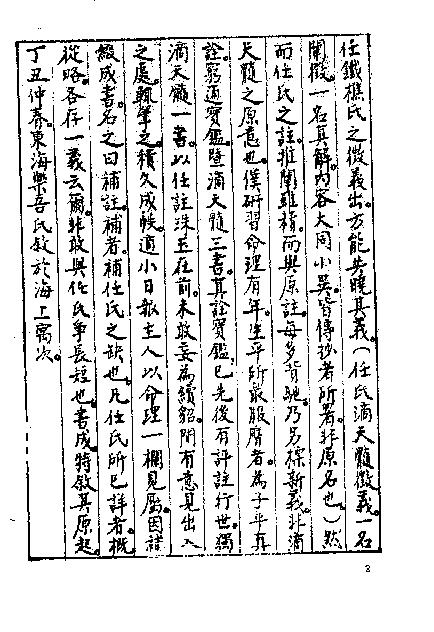 任鐵樵氏之徵義出。方能共曉其義。（任氏滴天髓徵義。一名
闡微。一名真解。內容大同小異。皆傳抄者所署。非原名也。）然
而任氏之註。推闡雖精。而與原註。每多背馳。乃另標新義。非滴
天髓之原意也。僕研習命理有年。生平所最服膺者。為子平真
詮。窮通寶鑑。暨滴天髓三書。真詮寶鑑。已先後有評註行世。獨
滴天髓一書。以任註珠玉在前。未敢妄為續貂。間有意見出入
之處。輒筆之。積久成帙。適小日報主人以命理一欄見屬。因
綴成書。名之曰補註。補者。補任氏之缺也。凡任氏所已詳者。概
從略。各存一義云爾。非敢與任氏爭長短也。書成。特敘其原起。
丁丑仲春。東海樂吾氏敘於海上寓次。
2